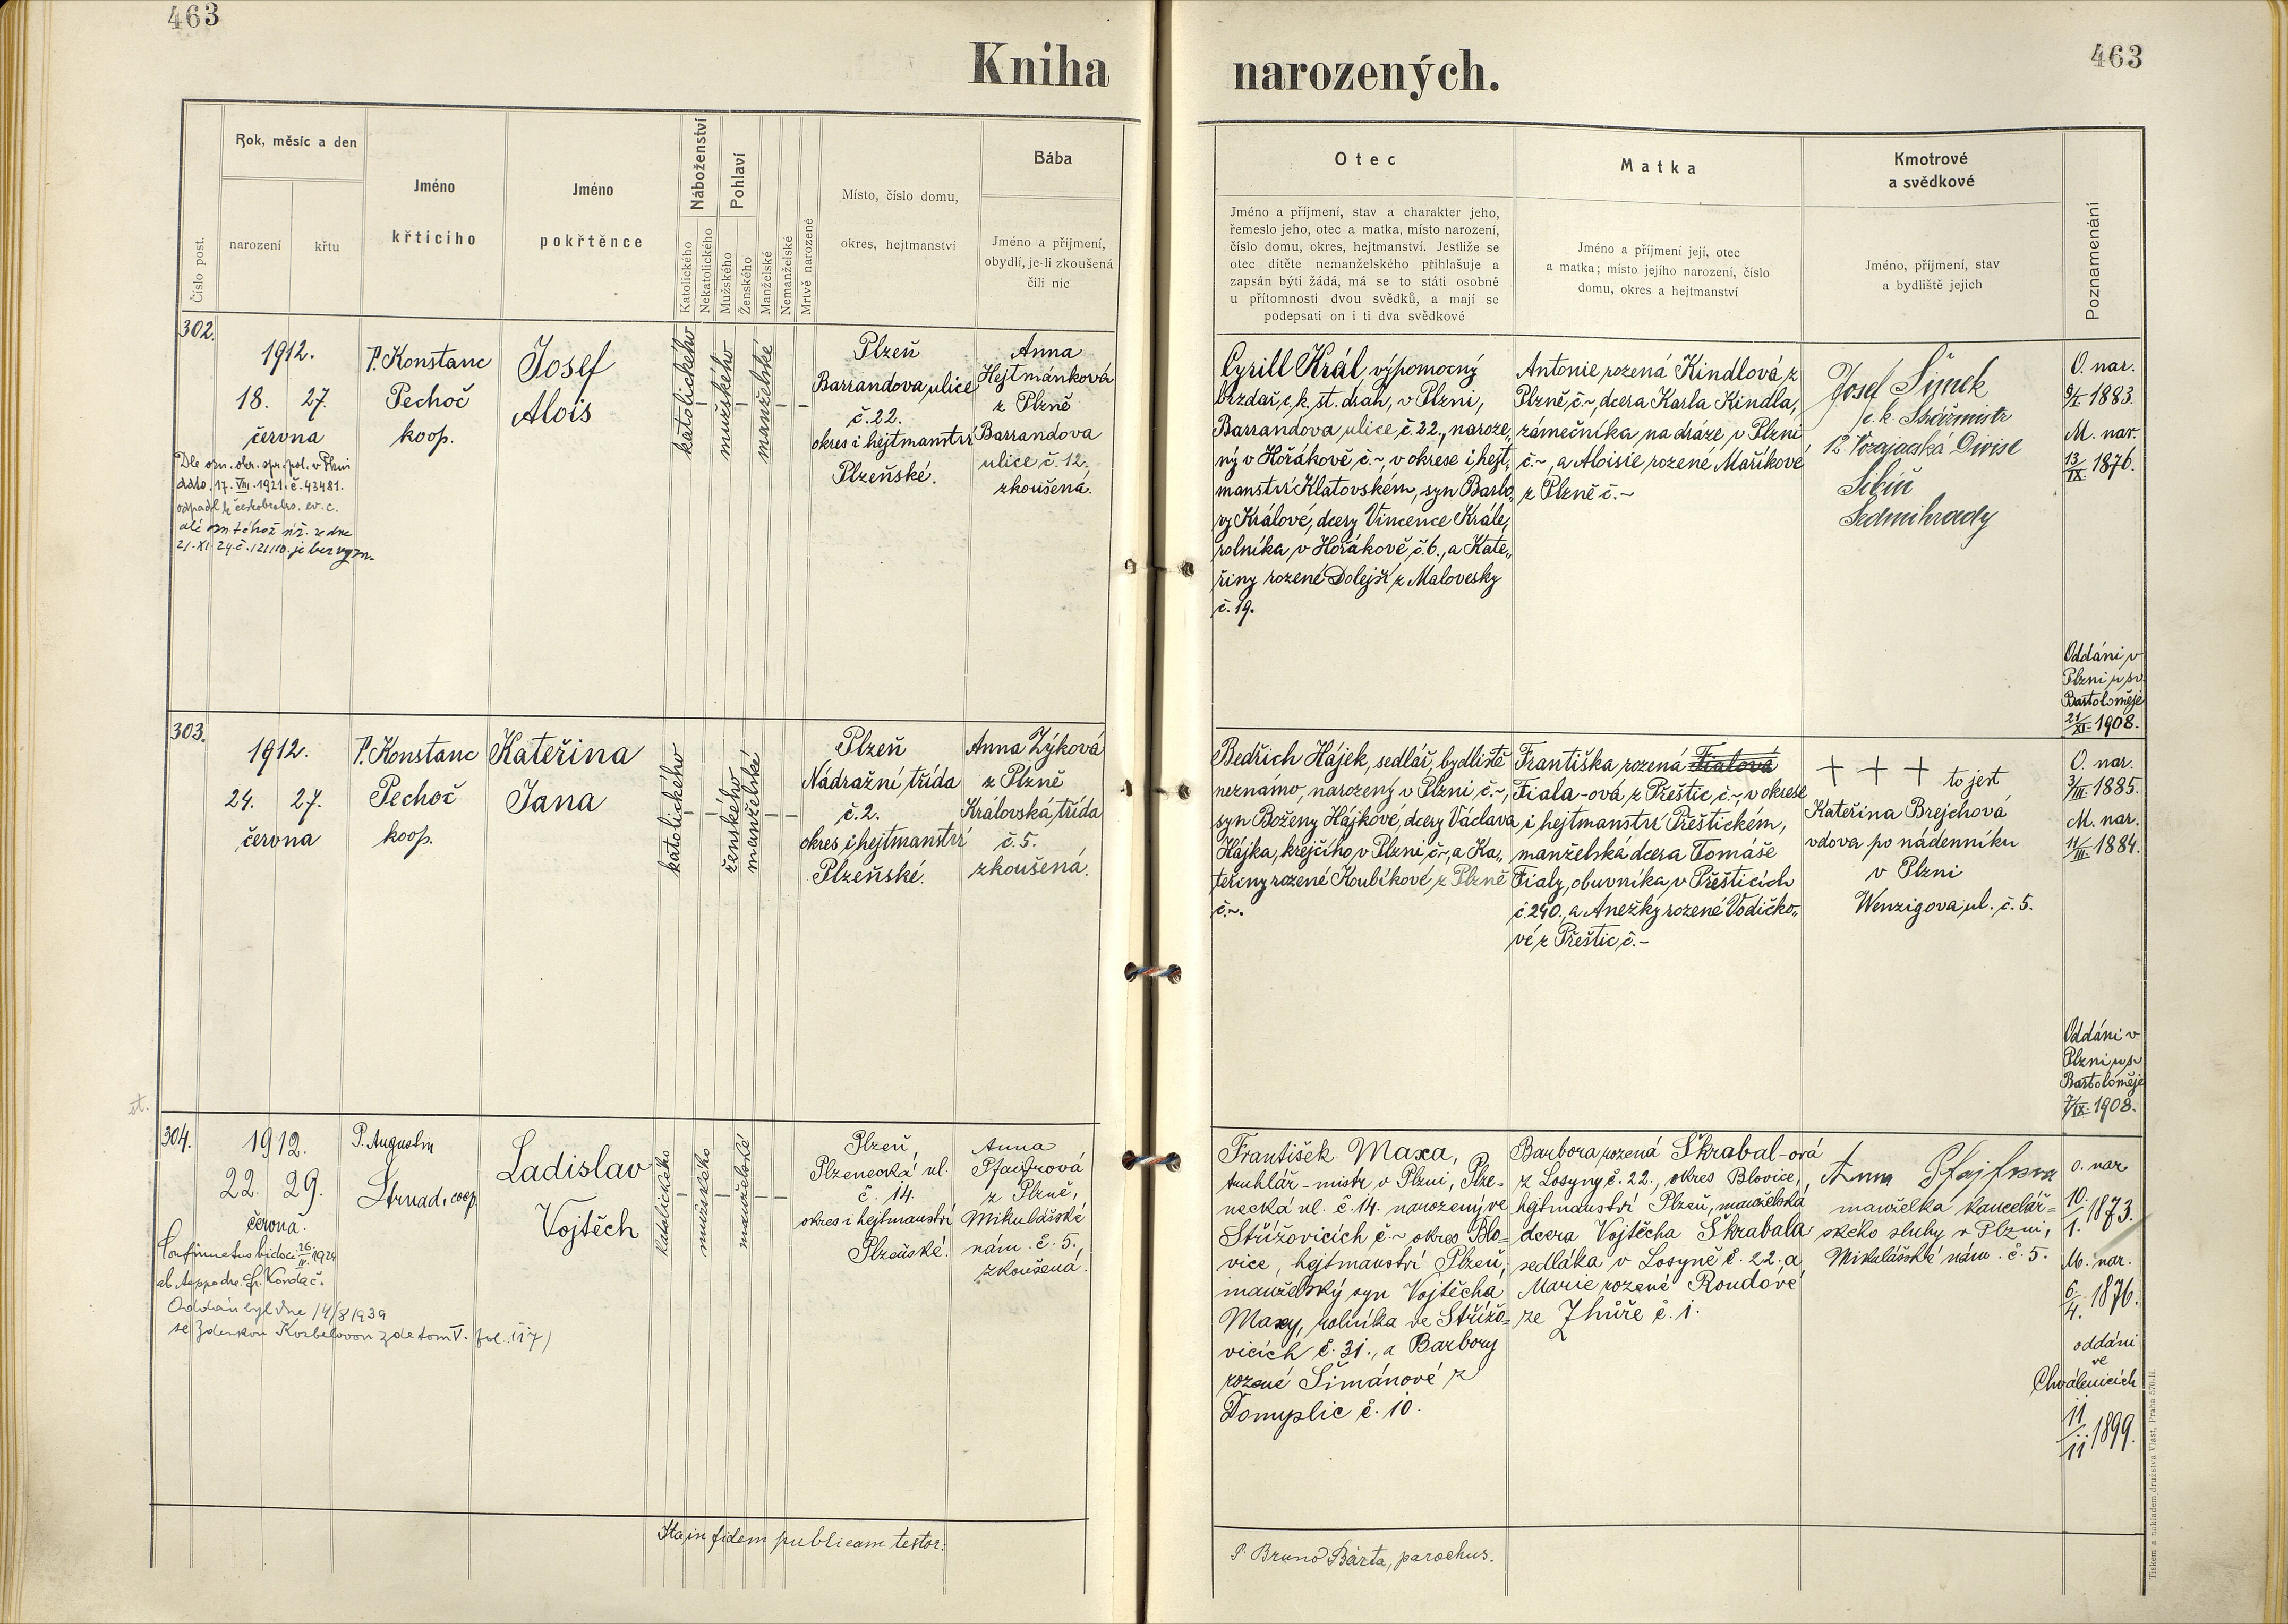 463
463
Kniha
narozených.
Číslo post.
Rok, měsíc a den
narození
křtu
Jméno
křticího
Jméno
pokřtěnce
Náboženství
Katolického
Nekatolického
Pohlaví
Mužského
Ženského
Manželské
Nemanželské
Mrtvě narozené
Místo, číslo domu,
okres, hejtmanství
Bába
Jméno a příjmení,
obydlí, je-li zkoušená
čili nic
Otec
Jméno a příjmení, stav a charakter jeho,
řemeslo jeho, otec a matka, místo narození,
číslo domu, okres, hejtmanství. Jestliže se
otec dítěte nemanželského přihlašuje a
zapsán býti žádá, má se to státi osobně
u přítomnosti dvou svědků, a mají se
podepsati on i ti dva svědkové
Matka
Jméno a příjmení její, otec
a matka; místo jejího narození, číslo
domu, okres a hejtmanství
Kmotrové
a svědkové
Jméno, příjmení, stav
a bydliště jejich
Poznamenání
302.
1912.
18. 27.
června
Dle ozn. okr. spr. pol. v Plzni
ddto. 17. VIII. 1921. č. 43481.
odpadl k českobratrs. ev. c.
21. XI. 24. č. 121110. je bez vyzn.
P. Konstanc
Pechoč
koop.
Josef
Alois
katolického
mužského
manželské
Plzeň
Barrandova ulice
č. 22.
okres i hejtmanství
Plzeňské.
Anna
Hejtmánková
z Plzně
Barrandova
ulice č. 12.
zkoušená.
Cyrill Král, výpomocný
brzdař c. k. st. drah, v Plzni,
Barrandova ulice č. 22., naroze„
ný v Hořákově č. ~, v okrese i hejt„
manství Klatovském, syn Barbo„
ry Králové, dcery Vincence Krále,
rolníka v Hořákově č. 6., a Kate„
řiny rozené Dolejší z Malovesky
č. 19.
Antonie rozená Kindlová z
Plzně, č. ~, dcera Karla Kindla,
zámečníka na dráze v Plzni
č. ~, a Aloisie rozené Maříkové
z Plzně č. ~
Josef Šimek
c. k. Strážmistr
12. Vozajacská Divise
Sibiň
Sedmihrady
O. nar.
9/I. 1883.
M. nar.
13/IX. 1876.
Oddáni v
Plzni u sv.
Bartoloměje
21/XI. 1908.
303.
1912.
24. 27.
června
P. Konstanc
Pechoč
koop.
Kateřina
Jana
katolického
ženského
manželské
Plzeň
Nádražní třída
č. 2.
okres i hejtmanství
Plzeňské.
Anna Zýková
z Plzně
Královská třída
č. 5.
zkoušená.
Bedřich Hájek, sedlář, bydliště
neznámo, narozený v Plzni č. ~,
syn Boženy Hájkové, dcery Václava
Hájka, krejčího v Plzni č. ~, a Ka„
teřiny rozené Koubíkové z Plzně
č. ~.
Františka rozená Fialová
Fiala-ová z Přeštic č. ~, v okrese
i hejtmanství Přeštickém,
manželská dcera Tomáše
Fialy, obuvníka v Přešticích
č. 240., a Anežky rozené Vodičko„
vé z Přeštic č. ~
+ + + to jest
Kateřina Brejchová
vdova po nádenníku
v Plzni
Wenzigova ul. č. 5.
O. nar.
3/III. 1885.
M. nar.
11/III. 1884.
Oddáni v
Plzni u sv.
Bartoloměje
7/IX. 1908.
st.
304.
1912.
22. 29.
června.
Confirmatus hic die 26./IV. 1924
Oddán byl dne 14/8 1939
se Zdenkou Korbelovou zde tom V. fol. 117)
P. Augustin
Strnad, coop.
Ladislav
Vojtěch
katolického
mužského
manželské
Plzeň,
Plzenecká ul.
č. 14.
okres i hejtmanství
Plzeňské.
Anna
Pfajfrová
z Plzně,
Mikulášské
nám. č. 5.,
zkoušená.
František Maxa,
truhlář-mistr v Plzni, Plze-
necká ul. č. 14. narozený ve
Střížovicích č. ~ okres Blo-
vice, hejtmanství Plzeň,
manželský syn Vojtěcha
Maxy, rolníka ve Střížo-
vicích č. 31., a Barbory
rozené Šimánové z
Domyslic č. 10.
Barbora rozená Škrabal-ová
z Losyny č. 22., okres Blovice,
hejtmanství Plzeň, manželská
dcera Vojtěcha Škrabala
sedláka v Losyně č. 22., a
Marie rozené Roudové
ze Zhůře č. 1.
Anna Pfajfrova
manželka kancelář-
ského sluhy v Plzni,
Mikulášské nám. č. 5.
O. nar.
10./1. 1873.
M. nar.
6./4. 1876.
oddáni
ve
Chválenicích
11/11 1899.
Ita in fidem publicam testor:
P. Bruno Bárta, parochus.
Tiskem a nákladem družstva Vlast, Praha 570-II.